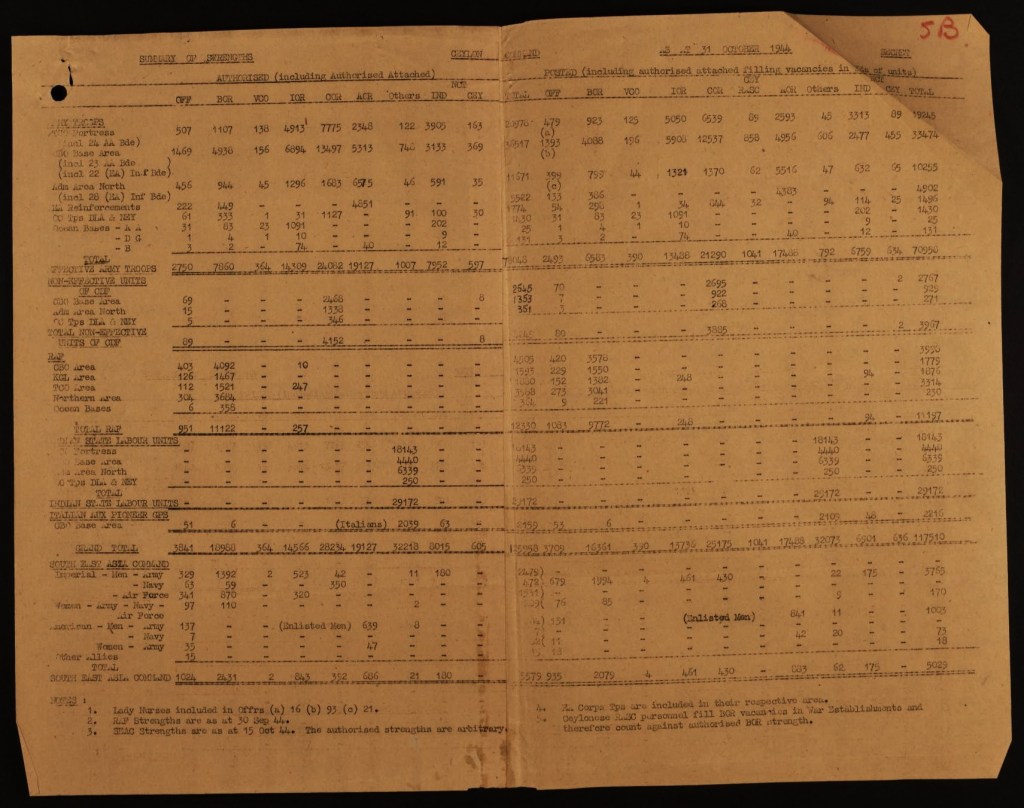 5B.
SUMMARY OF STRENGTHS CEYLON AS AT 31 OCTOBER 1944 SECRET
AUTHORISED (including Authorised Attached) POSTED (including authorised attached filling vacancies in of units)
NCT CEY NCT
OFF BOR VCO IOR COR AOR Others IND CEY TOTAL OFF BOR VCO IOR COR RASC AOR Others IND CEY TOTAL
TROOPS
Fortress 507 1107 138 4913 7775 2348 122 3905 163 20978 479 923 125 5050 6539 89 2593 45 3313 89 19245
(incl 24 AA Bde) (a)
Base Area 1469 4938 156 6894 13497 5313 748 3133 369 1393 4088 196 5908 12537 858 4956 606 2477 455 33474
(incl 23 AA Bde ) (b)
(incl 22 (EA) Inf Bde)
Adm Area North 456 944 45 1296 1683 46 591 35 399 795 44 1321 1370 62 5516 47 632 65 10255
(incl 28 (EA) Inf Bde) (c)
EA Reinforcements 222 449 - - - 4851 - - - 133 386 - - - - 4383 - - - 4902
OC Tps DLA & NEY 61 333 1 31 1127 - 91 100 30 1774 94 298 1 34 644 32 - 94 114 25 1496
Ocean Bases - A A 31 83 23 1091 - - - 202 - 1430 31 83 23 1091 - - - - 202 - 1430
- D G 1 4 1 10 - - - 9 - 25 1 4 1 10 - - - - 9 - 25
3 2 - 74 - 40 - 12 - 3 2 - 74 - - 40 - 12 - 131
TOTAL
EFFECTIVE ARMY TROOPS 2750 7860 364 14309 24082 19127 1007 7952 597 78048 2493 6583 390 13488 21290 1041 17488 792 6759 634 70958
NON-EFFECTIVE UNITS
OF CDF
CBO Base Area 69 - - - 2468 - - - 8 2545 70 - - - 2695 - - - - 2 2767
Adm Area North 15 - - - 1338 - - - - 1353 7 - - - 922 - - - - - 929
OC Tps DLA & NEY 5 - - - 346 - - - - 351 3 - - - 268 - - - - - 271
TOTAL NON-EFFECTIVE
UNITS OF CDF 89 - - - 4152 - - - 8 - - - 3885 - - - - 2
RAF
CBO Area 403 4092 - 10 - - - - - 4505 420 3578 - - - - - - - -
KGL Area 126 1467 - - - - - - - 229 1550 - - - - - - - - 1779
TCO Area 112 1521 - 247 - - - - - 152 1382 - 248 - - - - 94 - 1876
Northern Area 304 3684 - - - - - - - 273 3041 - - - - - - - - 3314
Ocean Bases 6 358 - - - - - - - 364 9 221 - - - - - - - - 230
TOTAL RAF 951 11122 - 257 - - - - - 12330 1083 9772 - 248 - - - - 94 - 11197
STATE LABOUR UNITS
Fortress - - - - - - 18143 - - - - - - - - - 18143 - - 18143
Base Area - - - - - - 4440 - - 4440 - - - - - - - 4440 - - 4440
Area North - - - - - - 6339 - - - - - - - - - 6339 - - 6339
OC Tps DLA & NEY - - - - - - 250 - - 250 - - - - - - - 250 - - 250
TOTAL
INDIAN STATE LABOUR UNITS - - - - - - 29172 - - 29172 - - - - - - - 29172 - - 29172
ITALIAN AUX PIONEER GPS
CBO Base Area 51 6 - - (Italians) 2039 63 - 2159 53 6 - - - - - 2109 48 - 2216
GRAND TOTAL 3841 18988 364 14566 28234 19127 32218 8015 605 3709 16361 390 13736 25175 1041 17488 32073 6901 636 117510
SOUTH EAST ASIA COMMAND
Imperial - Men - Army 329 1392 2 523 42 - 11 180 2479)
- Navy 63 59 - - 350 - - - 472) 679 1994 4 461 430 - - 22 175 - 3765
- Air Force 341 870 - 320 - - - -
Women - Army - Navy - 97 110 - - - - 2 - 76 85 - - - - - 9 - - 170
Air Force
American - Men - Army 137 - - (Enlisted Men) 639 8 - 151 - - (Enlisted Men) 841 11 - - 1003
- Navy 7 - - - - - - - 42 20 - - 73
Women - Army 35 - - - - 47 - - 18
Other Allies 15 - - - - - - -
TOTAL
SOUTH EAST ASIA COMMAND 1024 2431 2 843 352 686 21 180 - 935 2079 4 461 430 - 883 62 175 - 5029
NOTES :
1. Lady Nurses included in Offrs (a) 16 (b) 93 (c) 21.
2. RAF Strengths are as at 30 Sep 44.
3. SEAC Strengths are as at 15 Oct 44. The authorised strengths are arbitrary.
4. EA Corps Tps are included in their respective area.
5. Ceylonese RASC personnel fill BOR vacancies in War Establishments and
therefore count against authorised BOR strength.